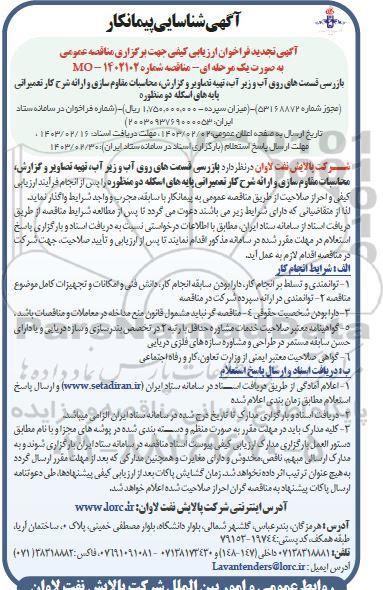 آگهی شناسایی پیمانکار
آگهی تجدید فراخوان ارزیابی کیفی جهت برگزاری مناقصه عمومی
به صورت یک مرحله ای- مناقصه شماره MO - ۱۴۰۲۱۰۲
بازرسی قسمت های روی آب و زیر آب، تهیه تصاویر و گزارش، محاسبات مقاوم سازی و ارائه شرح کار تعمیراتی
پایه های اسکله دو منظوره
(مجوز شماره ۵۳۱۶۸۸۷۲)-(میزان سپرده - ۱,۷۵۰,۰۰۰,۰۰۰ ریال)-(شماره فراخوان در سامانه ستاد
ایران: ۲۰۰۳۰۹۳۷۶۹۰۰۰۰۵۳)
تاریخ ارسال به صفحه اعلان عمومی: ۱۴۰۳/۰۲/۰۲، مهلت دریافت اسناد: ۱۴۰۳/۰۲/۱۶،
مهلت ارسال پاسخ استعلام (بارگزاری اسناد در سامانه ستاد ایران): ۱۴۰۳/۰۲/۳۰
شرکت پالایش نفت لاوان در نظر دارد بازرسی قسمت های روی آب و زیر آب، تهیه تصاویر و گزارش،
محاسبات مقاوم سازی و ارائه شرح کار تعمیراتی پایه های اسکله دو منظوره را پس از انجام فرآیند ارزیابی
کیفی و احراز صلاحیت از طریق مناقصه عمومی به پیمانکار با سابقه، مجرب و واجد شرایط واگذار نماید.
لذا از متقاضیانی که دارای شرایط زیر می باشند دعوت می گردد تا پس از مطالعه شرایط مناقصه از طریق
دریافت اسناد از سامانه ستاد ایران، مطابق با اطلاعات درخواستی نسبت به دریافت اسناد و بارگزاری پاسخ
استعلام در مهلت مقرر شده در سامانه مذکور اقدام نمایند تا پس از ارزیابی و تأیید صلاحیت، جهت شرکت
در مناقصه اقدام لازم به عمل آید.
الف: شرایط انجام کار
۱- توانمندی و تسلط بر انجام کار، دارا بودن سابقه انجام کار، دانش فنی و امکانات و تجهیزات کامل موضوع
مناقصه ۲- توانمندی در ارائه سپرده شرکت در مناقصه
۳- دارا بودن شخصیت حقوقی ۴- مناقصه گر نباید مشمول قانون منع مداخله در معاملات و مناقصات باشد.
۵- گواهینامه معتبر صلاحیت خدمات مشاوره حداقل با رتبه ۲ در تخصص بندرسازی و سازه دریایی و یا دارای
حسن سابقه مستمر در طراحی و مشاوره سازه های فلزی دریایی
۶- گواهی صلاحیت معتبر ایمنی از وزارت تعاون، کار و رفاه اجتماعی
ب: دریافت اسناد و ارسال پاسخ استعلام
۱- اعلام آمادگی از طریق دریافت اسناد در سامانه ستاد ایران (www.setadiran.ir) و ارسال پاسخ
استعلام مطابق زمان بندی اعلام شده
۲- دریافت اسناد و بارگزاری مدارک تا تاریخ درج شده در سامانه ستاد ایران الزامی میباشد.
۳- کلیه مدارک باید در مهلت مقرر به صورت منظم و دسته بندی شده در پوشه های مجزا و با نام مطابق
دستور العمل بارگزاری مدارک ارزیابی کیفی پیوست اسناد مناقصه در سامانه ستاد ایران بارگزاری شوند و به
مدارک ارسالی مبهم، ناقص، مخدوش و دارای مغایرت و همچنین مدارکی که بعد از مهلت مقرر ارسال گردد
به هیچ عنوان ترتیب اثر داده نخواهد شد. زمان گشایش پاکات بعد از ارزیابی کیفی پیشنهادها، طی دعوتنامه
ارسال پاکات پیشنهاد به مناقصه گران احراز صلاحیت شده اعلام خواهد شد.
آدرس اینترنتی شرکت پالایش نفت لاوان: www.lorc.ir
آدرس: هرمزگان، بندرعباس، گلشهر شمالی، بلوار دانشگاه، بلوار مصطفی خمینی، پلاک ۰، ساختمان آریا،
طبقه همکف، کد پستی: ۱۹۷۴۴-۷۹۱۵۳
تلفن: ۰۷۱۳۸۳۱۸۸۸۱ داخلی (۱۴۷-۱۴۸) و ۰۷۱۳۸۱۷۳۴۳۰ - ۰۷۹۱۰۹۱۰۸۱، فاکس: ۳۸۳۱۸۸۸۲ (۰۷۱)
آدرس ایمیل: Lavantenders@lorc.ir
روابط عمومی و امور بین الملل شرکت پالایش نفت لاوان